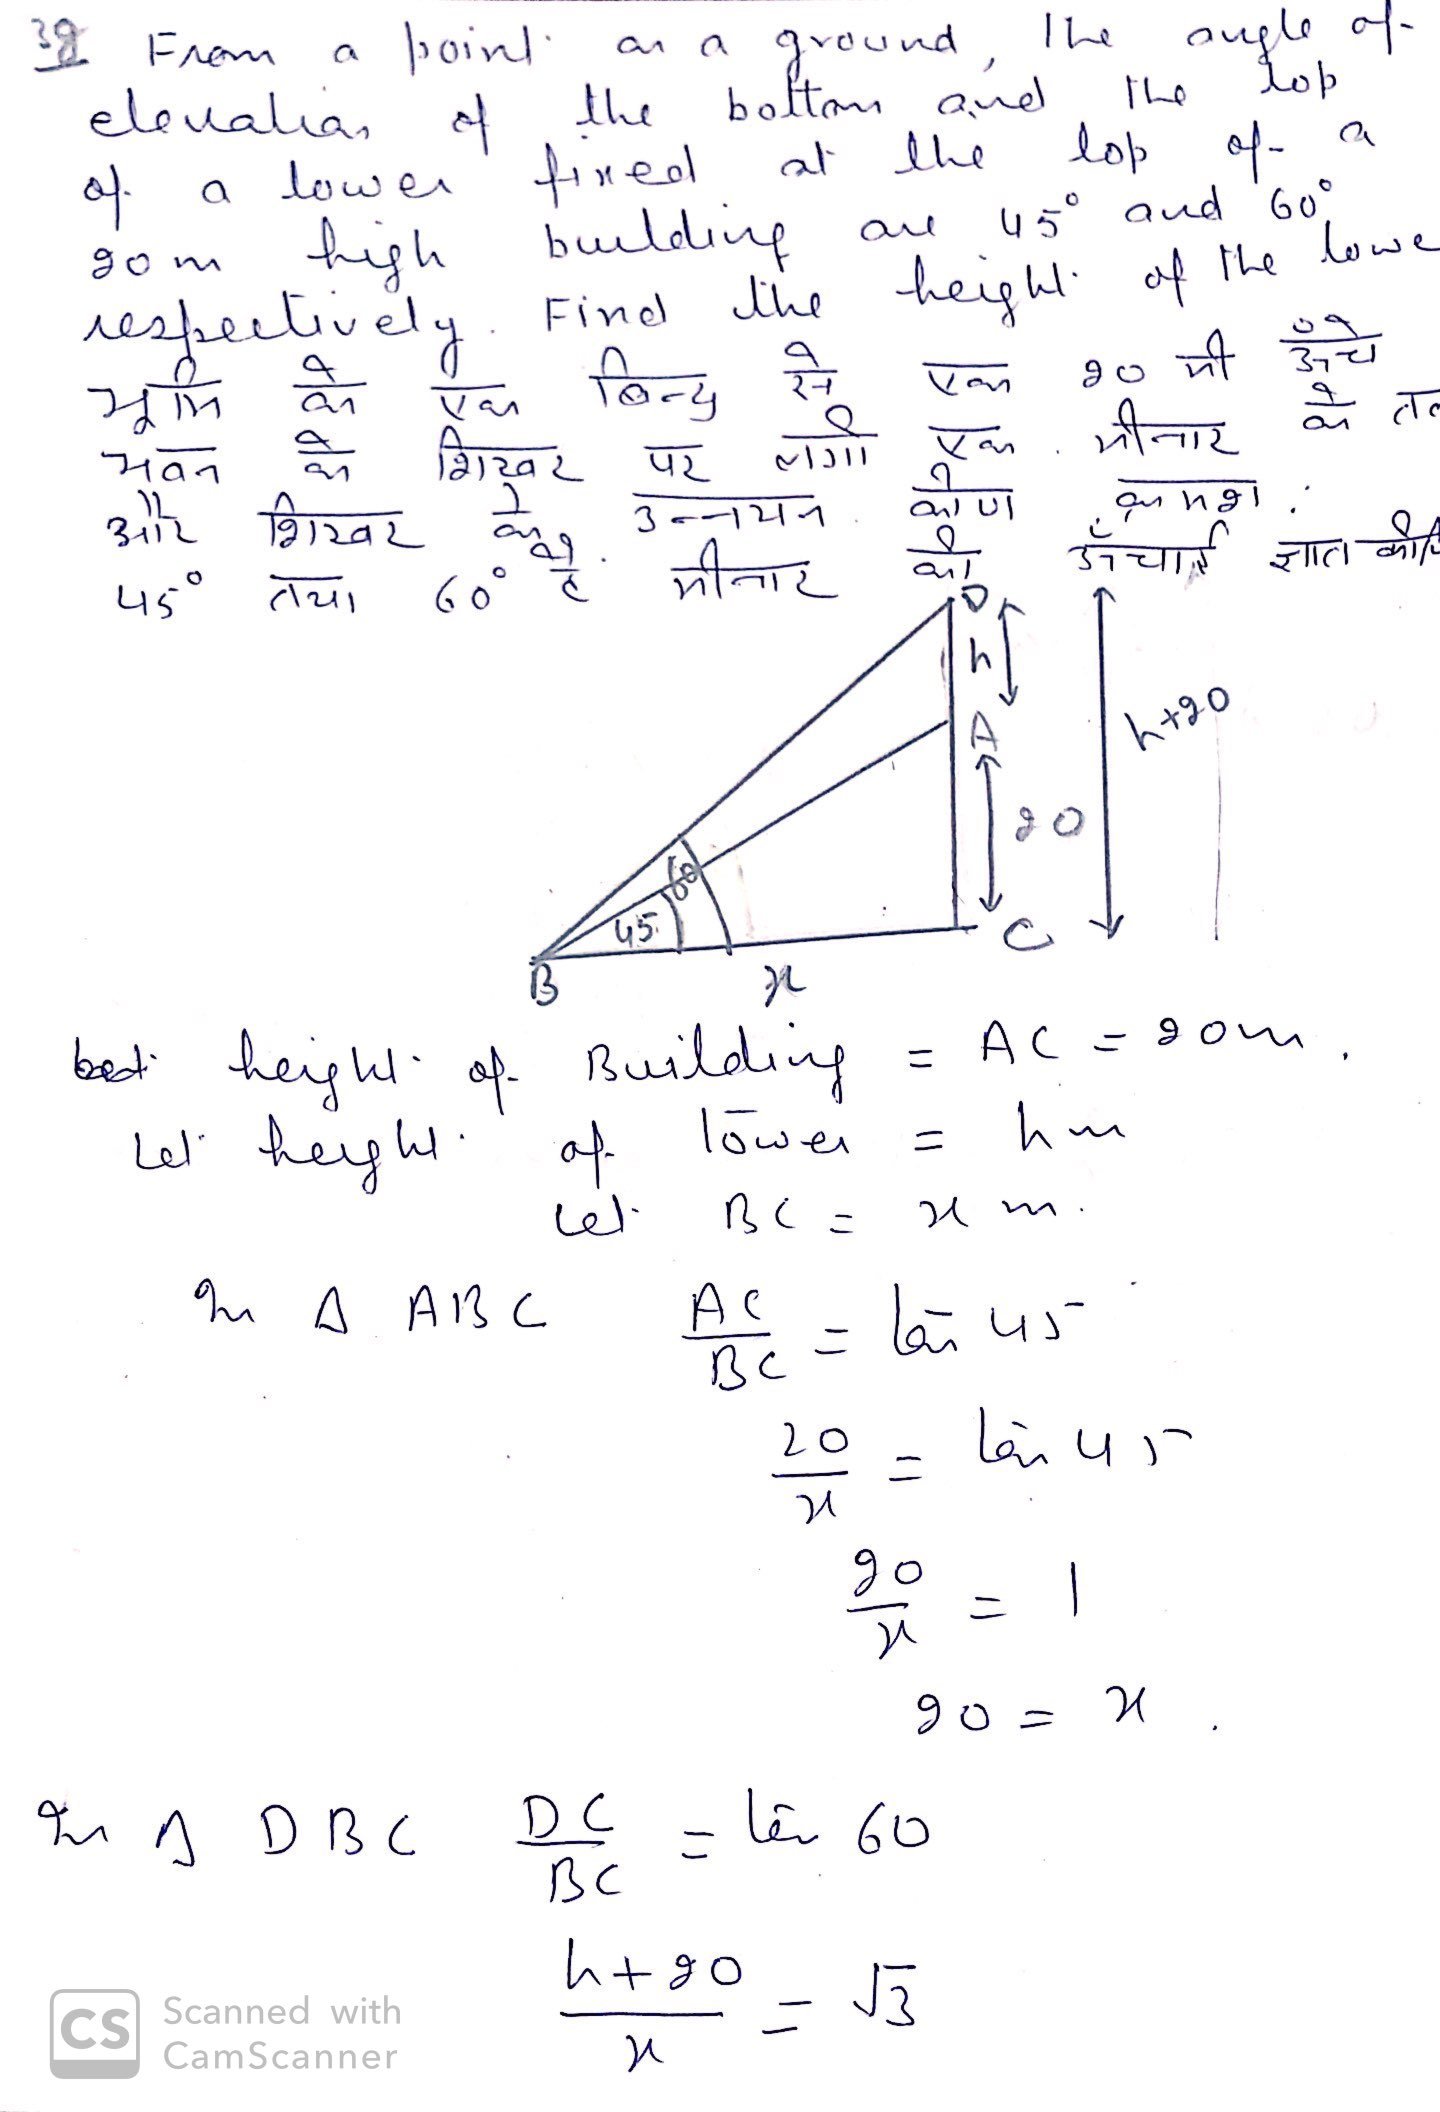 38 From a point on a ground, the angle of
elevation of the bottom and the top
of a tower fixed at the top of a
20 m high building are 45° and 60°
respectively. Find the height of the towe
भूमि के एक बिन्दु से एक 20 मी ऊँचे
भवन के शिखर पर लगी एक मीनार के तल
और शिखर के उन्नयन कोण क्रमश:
45° तथा 60° है. मीनार की ऊँचाई ज्ञात कीजि
D
h
A
h+20
20
60
45
C
B
x
height of Building = AC = 20m.
Let height of tower = h m
Let BC = x m.
In Δ ABC AC/BC = tan 45
20/x = tan 45
20/x = 1
20 = x.
In Δ DBC DC/BC = tan 60
h+20/x = √3
CS Scanned with
CamScanner